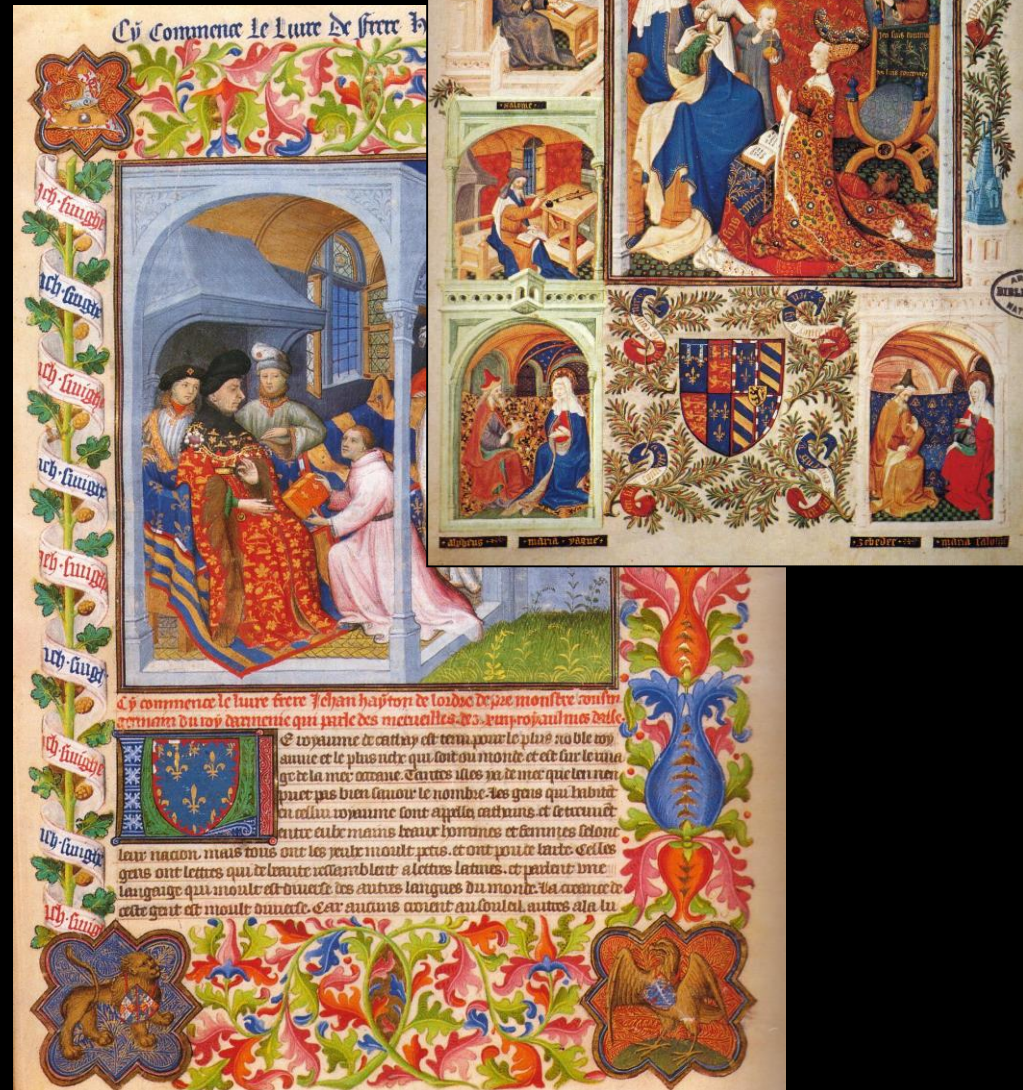 Cÿ Commence Le Liure De frere H
ich swighe
ich swighe
ich swighe
ich swighe
ich swighe
ich swighe
ich swighe
ich swighe
ich swig
Cÿ commence le liure frere Jehan hayton de lordre de pre monstre cousin
germain du roy darmenie qui parle des merueilles des xiiij royaulmes dasie.
E royaume de cathay est tenu pour le plus noble roy
aume et le plus riche qui soit ou monde. et est sur le riua
ge de la mer occeane. Tantes isles ya de mer que len nen
puet pas bien sauoir le nombre. Les gens qui habitent
en cellui royaume sont appellez cathains. et se treuuent
entre eulx mains beaux hommes et femmes selonc
leur nacion. mais tous ont les yeulx moult petis. et ont pou de barbe. Celles
gens ont lettres qui de beaute ressamblent a lettres latines. et parlent vne
langaige qui moult est diuerse des autres langues du monde. La creance de
ceste gent est moult diuerse. Car aucuns croient au souleil. autres a la lu
alpheus
maria
zebedee
maria salome
BIBLI